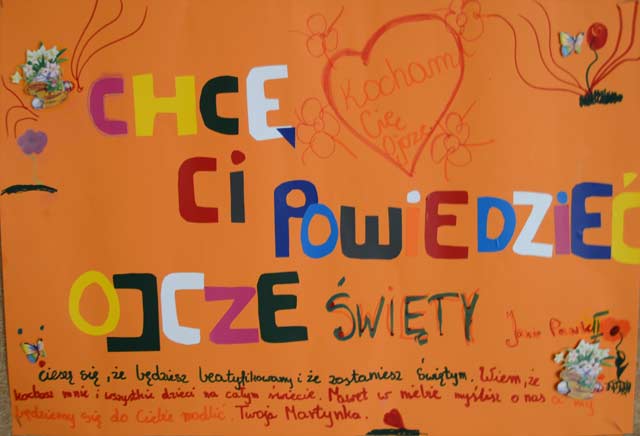 Kocham
Cię
Ojcze
CHCĘ
CI POWIEDZIEĆ
OJCZE ŚWIĘTY
Janie Pawle II
cieszę się, że będziesz beatyfikowany i że zostaniesz Świętym. Wiem, że
kochasz mnie i wszystkie dzieci na całym świecie. Nawet w niebie myślisz o nas a my
będziemy się do Ciebie modlić. Twoja Martynka.